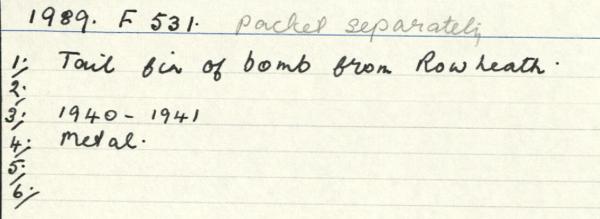 1989. F 531. packed separately
1. Tail fin of bomb from Rowheath.
2.
3. 1940 - 1941
4. Metal.
5.
6.